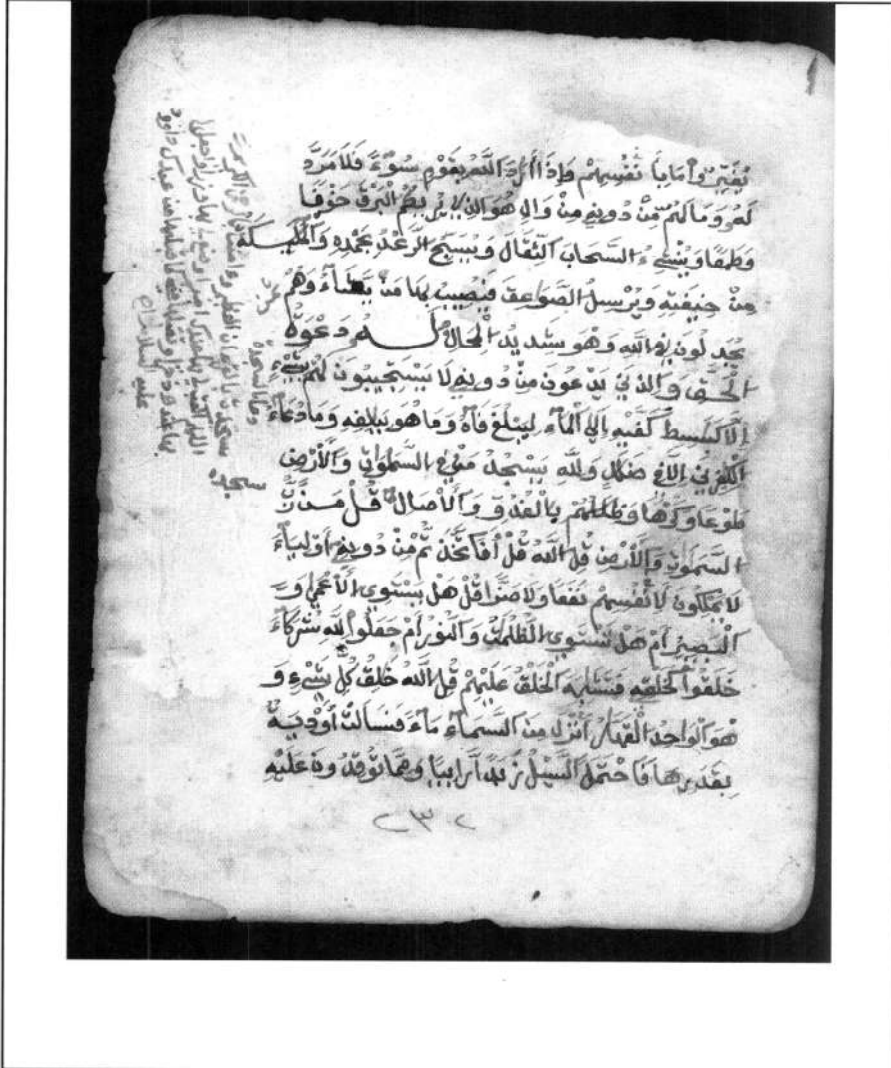 يُغَيِّرُواْ مَا بِأَنفُسِهِمْ وَإِذَا أَرَادَ اللَّهُ بِقَوْمٍ سُوٓءًا فَلَا مَرَدَّ
لَهُ وَمَا لَهُم مِّنْ دُونِهِ مِنْ وَالٍ هُوَ الذِي يُرِيكُمُ الْبَرْقَ خَوْفًا
وَطَمَعًا وَيُنْشِئُ السَّحَابَ الثِّقَالَ وَيُسَبِّحُ الرَّعْدُ بِحَمْدِهِ وَالْمَلَٰٓئِكَةُ
مِنْ خِيفَتِهِ وَيُرْسِلُ الصَّوَاعِقَ فَيُصِيبُ بِهَا مَنْ يَشَآءُ وَهُمْ
يُجَٰدِلُونَ فِي اللَّهِ وَهُوَ شَدِيدُ الْمِحَالِ لَهُ دَعْوَةُ
الْحَقِّ وَالذِينَ يَدْعُونَ مِنْ دُونِهِ لَا يَسْتَجِيبُونَ لَهُمْ بِشَيْءٍ
إِلَّا كَبَٰسِطِ كَفَّيْهِ إِلَى الْمَآءِ لِيَبْلُغَ فَاهُ وَمَا هُوَ بِبَٰلِغِهِ وَمَا دُعَآءُ
الْكَٰفِرِينَ إِلَّا فِي ضَلَٰلٍ وَلِلَّهِ يَسْجُدُ مَنْ فِي السَّمَٰوَٰتِ وَالْأَرْضِ
طَوْعًا وَكَرْهًا وَظِلَٰلُهُمْ بِالْغُدُوِّ وَالْأَصَالِ قُلْ مَن رَّبُّ
السَّمَٰوَٰتِ وَالْأَرْضِ قُلِ اللَّهُ قُلْ أَفَاتَّخَذْتُم مِّنْ دُونِهِ أَوْلِيَآءَ
لَا يَمْلِكُونَ لِأَنْفُسِهِمْ نَفْعًا وَلَا ضَرًّا قُلْ هَلْ يَسْتَوِي الْأَعْمَى وَ
الْبَصِيرُ أَمْ هَلْ تَسْتَوِي الظُّلُمَٰتُ وَالنُّورُ أَمْ جَعَلُواْ لِلَّهِ شُرَكَآءَ
خَلَقُواْ كَخَلْقِهِ فَتَشَٰبَهَ الْخَلْقُ عَلَيْهِمْ قُلِ اللَّهُ خَٰلِقُ كُلِّ شَيْءٍ وَ
هُوَ الْوَاحِدُ الْقَهَّارُ أَنْزَلَ مِنَ السَّمَآءِ مَآءً فَسَالَتْ أَوْدِيَةٌ
بِقَدَرِهَا فَاحْتَمَلَ السَّيْلُ زَبَدًا رَّابِيًا وَمِمَّا تُوقِدُونَ عَلَيْهِ
٢٣٢
سجدة
عليه السلام